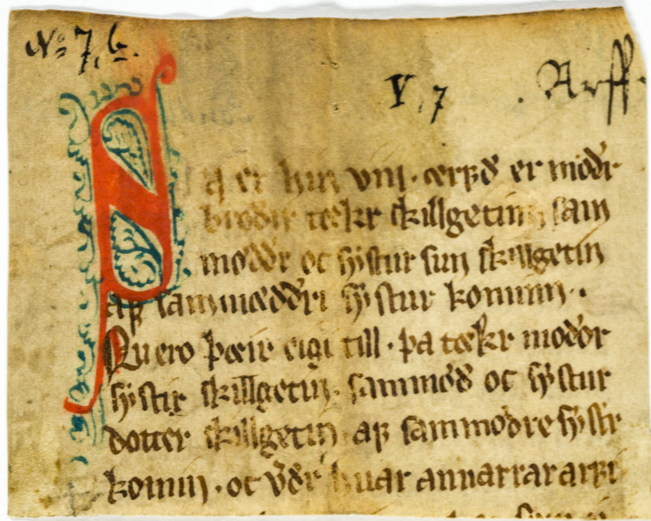 No 7, 6.
Y, 7 . Arff
Þa er hin viii. ærfð er moðr
broðer tækr skillgetinn sam
mœðdr oc systur sun skillgetin
af sammœðdri systur kominn.
Quero þæir eigi till. þa tækr moðor
systir skillgetin. sammœð oc systur
dotter skillgetin af sammoðre systr
komin. oc vðr huar annarrar arfi